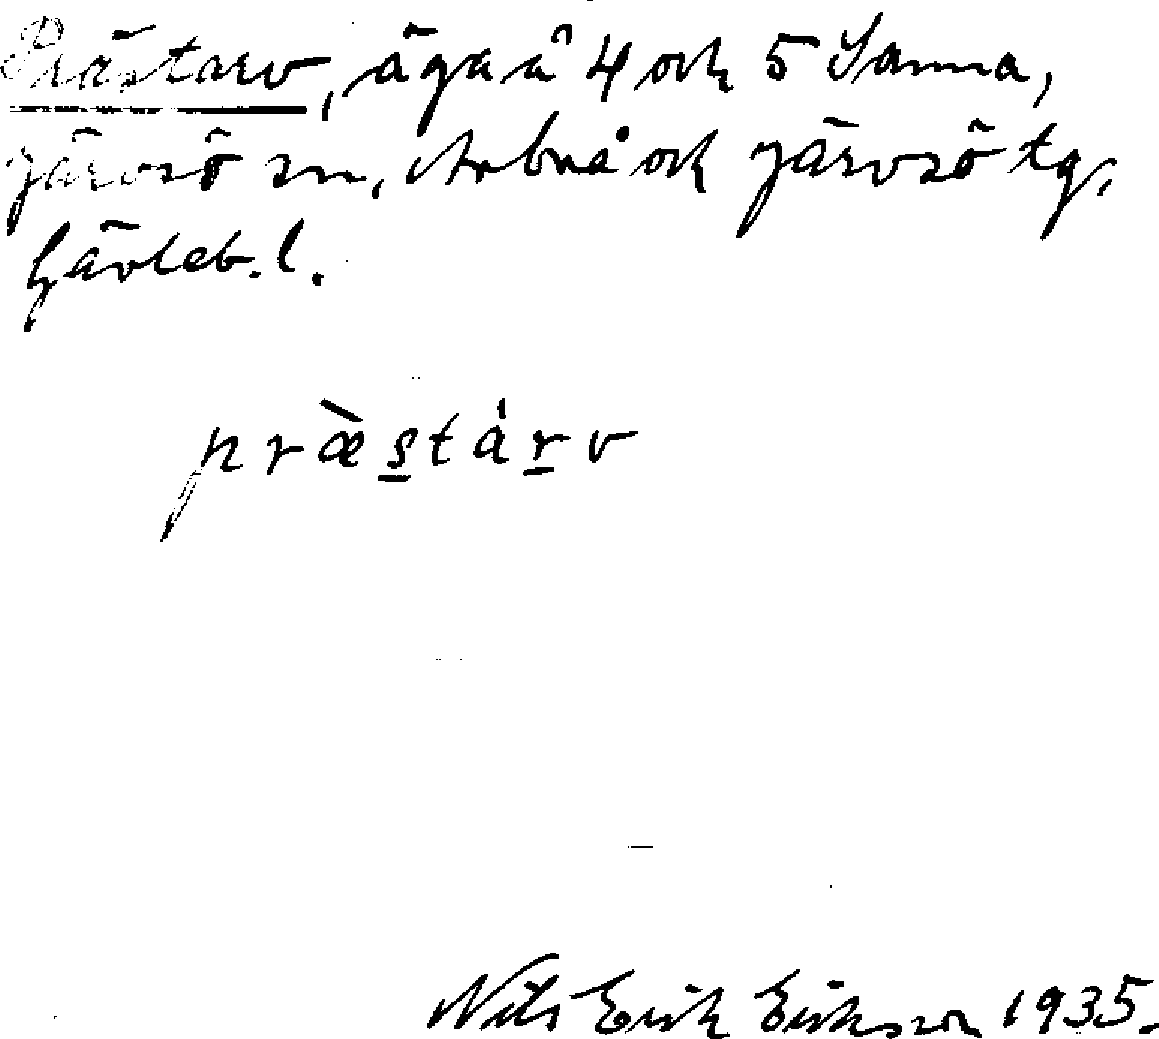 Prästarv, äga å 4 och 5 Sanna,
Järvsö sn, Arbrå och Järvsö tg,
Gävleb. l.
præ̀s̲tár̲v
Nils Erik Eriksson 1935.